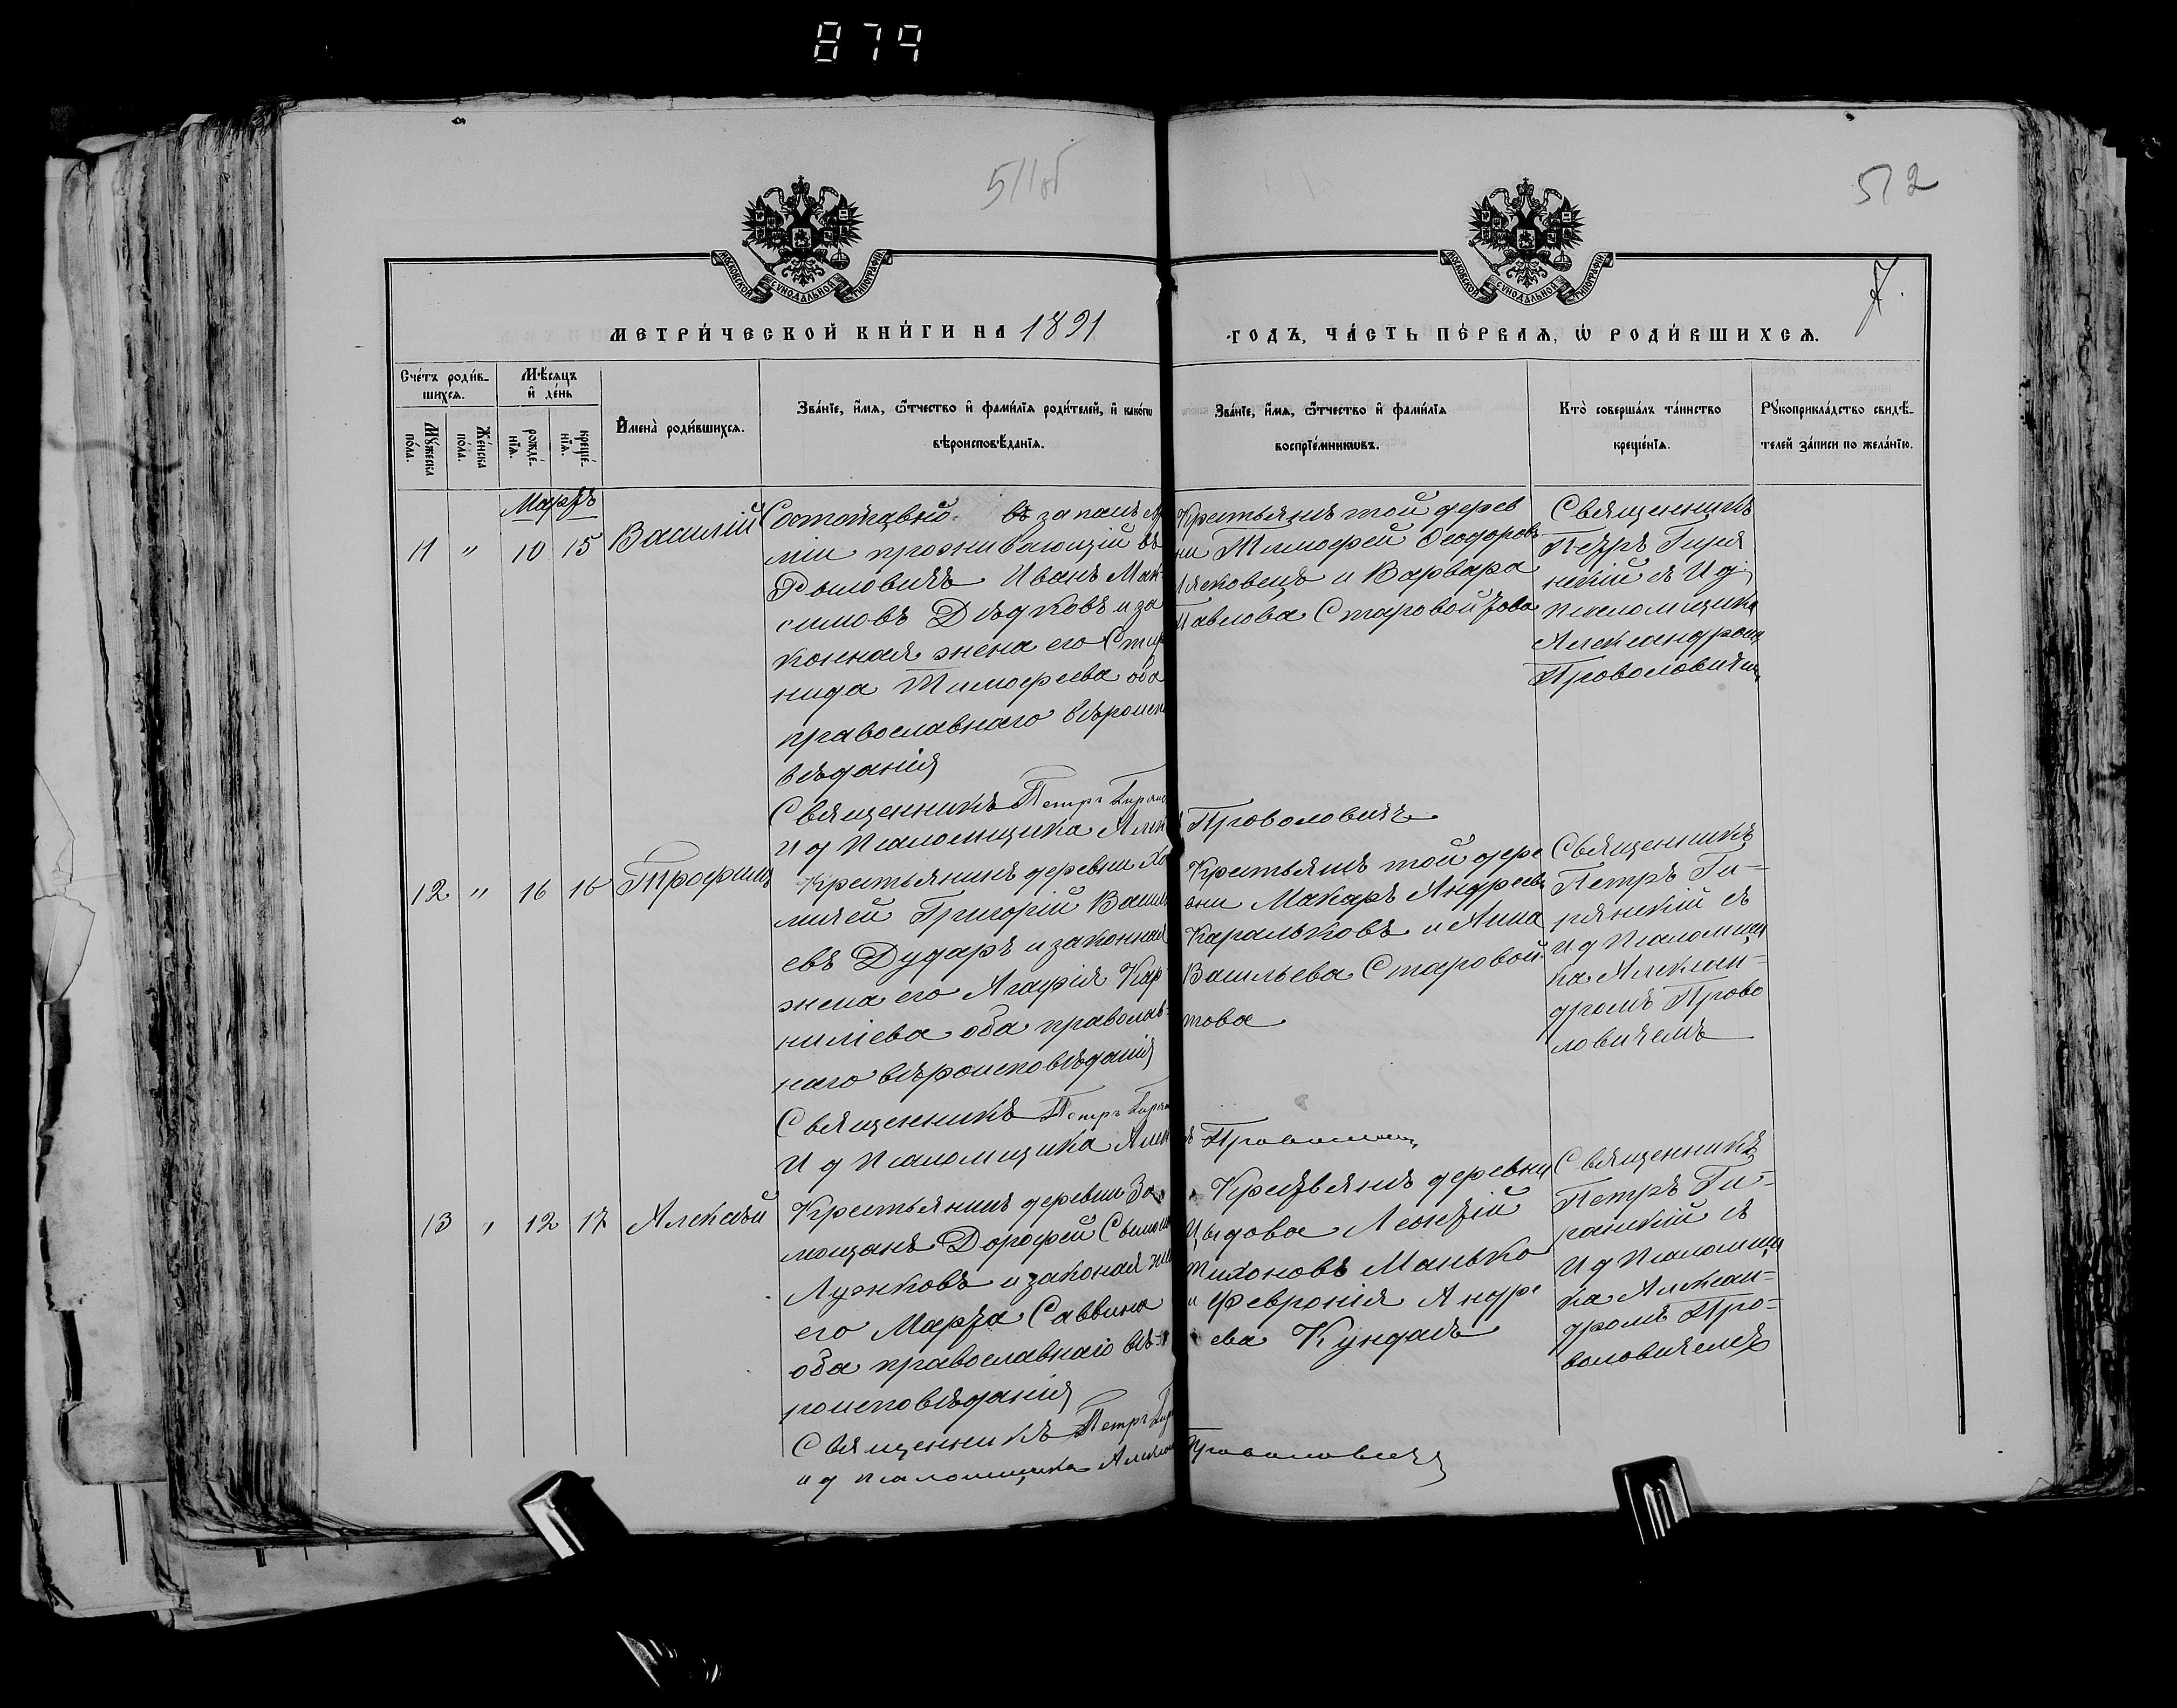 879
511об
512
7.
МОСКОВСКОЙ СѴНОДАЛЬНОЙ ТИПОГРАФІИ
МОСКОВСКОЙ СѴНОДАЛЬНОЙ ТИПОГРАФІИ
МЕТРИ́ЧЕСКОЙ КНИ́ГИ НА 1891
ГОДЪ, ЧА́СТЬ ПЕ́РВАЯ, Ѡ РОДИ́ВШИХСЯ.
Сче́тъ роди́в-
шихся.
Мѣ́сяцъ
и҆ де́нь
Мꙋ́жеска по́ла.
Же́нска по́ла.
рожде́-
нїя.
креще́-
нїя.
И҆мена̀ роди́вшихся.
Зва́нїе, и҆́мя, ѻ҆́тчество и҆ фами́лїя роди́телей, и҆ какóгѡ
вѣроисповѣ́данїя.
Зва́нїе, и҆́мя, ѻ҆́тчество и҆ фами́лїя
воспрїе́мникѡвъ.
Кто̀ совершáлъ тáинство
креще́нїя.
Рꙋкоприкла́дство свидѣ́-
телей зáписи по желáнїю.
Мартъ
11 " 10 15 Василій
Состоящій въ запасѣ ар
міи проживающій въ
Рысовичѣ Иванъ Мак-
симовъ Дѣдковъ и за
конная жена его Сте
нида Тимофеева оба
православнаго вѣроиспо
вѣданія
Священникъ Петръ Гирян
И д псаломщика Алек
Крестьянинъ той дерев
ни Тимофей Ѳеодоровъ
Лясковецъ и Варвара
Павлова Старовойтова
Проволовичъ
Священникъ
Петръ Гиря
нскій съ И д
псаломщика
Александромъ
Проволовичемъ
12 " 16 16 Трофимъ
Крестьянинъ деревни Хо
мичей Григорій Василь
евъ Дударь и законная
жена его Агафія Кар
ниліева оба православ-
наго вѣроисповѣданія
Священникъ Петръ Гирян
И д псаломщика Алек
Крестьянинъ той дере
вни Макаръ Андреевъ
Каральковъ и Анна
Васильева Старовой-
това
Проволовичъ
Священникъ
Петръ Ги-
рянскій съ
И д псаломщи
ка Алексан-
дромъ Прово
ловичемъ
13 " 12 17 Алексѣй
Крестьянинъ деревни За
мощанъ Дорофей Семено
Луенковъ и законая жена
его Марфа Саввина
оба православнаго вѣ-
роисповѣданія
Священникъ Петръ Гир
и д псаломщика Алексан
Крестьянинъ деревни
Цыдова Леонтій
Тихоновъ Манько
и Февронія Андре
ева Кундасъ
Проволовичъ
Священникъ
Петръ Ги-
рянскій съ
И д псаломщи
ка Алексан-
дромъ Про-
воловичемъ